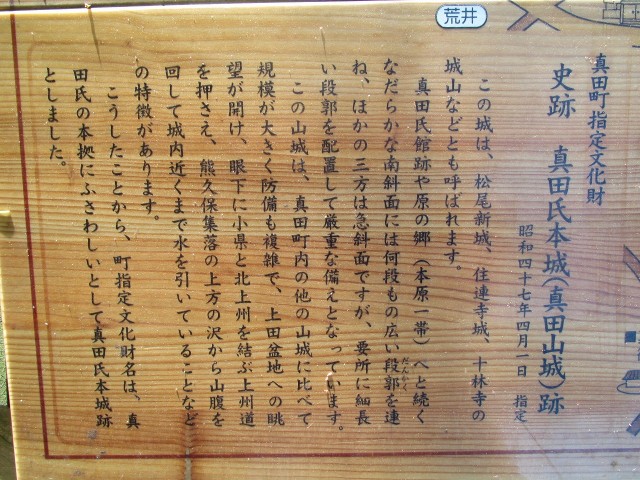 荒井
真田町指定文化財
史跡　真田氏本城(真田山城)跡
昭和四十七年四月一日　指定
この城は、松尾新城、住連寺城、十林寺の
城山などとも呼ばれます。
真田氏館跡や原の郷（本原一帯）へと続く
なだらかな南斜面には何段もの広い段郭を連
だんかく
ね、ほかの三方は急斜面ですが、要所に細長
い段郭を配置して厳重な備えとなっています。
この山城は、真田町内の他の山城に比べて
規模が大きく防備も複雑で、上田盆地への眺
望が開け、眼下に小県と北上州を結ぶ上州道
を押さえ、熊久保集落の上方の沢から山腹を
回して城内近くまで水を引いていることなど
の特徴があります。
こうしたことから、町指定文化財名は、真
田氏の本拠にふさわしいとして真田氏本城跡
としました。